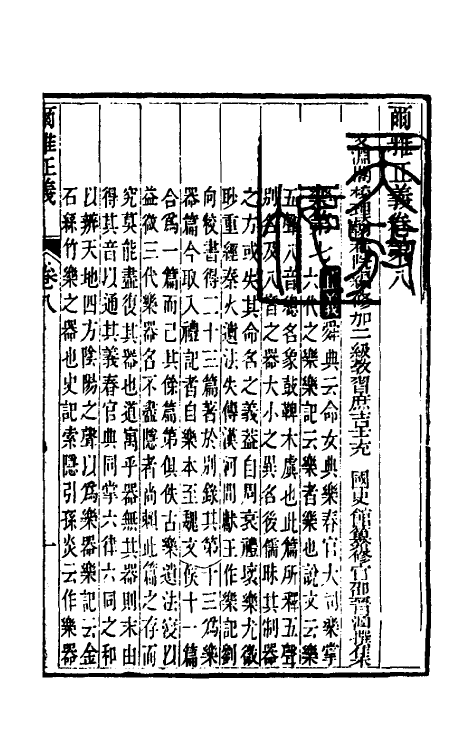 爾雅正義卷第八
文淵閣校理翰林院編修加二級教習庶吉士充 國史館纂修官邵晉涵撰集
釋樂第七 正義 舜典云命女典樂春官大司樂掌
六代之樂樂記云樂者樂也說文云樂
五聲八音總名象鼓鞞木虡也此篇所釋五聲
別名及八音之器大小之異名後儒昧其制器
之方或失其命名之義蓋自周衰禮壞樂尤微
眇重經秦火遺法失傳漢河間獻王作樂記劉
向校書得二十三篇著於別錄其第十三爲樂
器篇今取入禮記者自樂本至魏文侯十一篇
合爲一篇而已其餘篇第俱佚古樂遺法沒以
益微三代樂器名不盡隱者尚賴此篇之存而
究莫能盡復其器也道寓乎器無其器則末由
得其音以通其義春官典同掌六律六同之和
以辨天地四方陰陽之聲以爲樂器樂記云金
石絲竹樂之器也史記索隱引孫炎云作樂器
爾雅正義 卷八 一